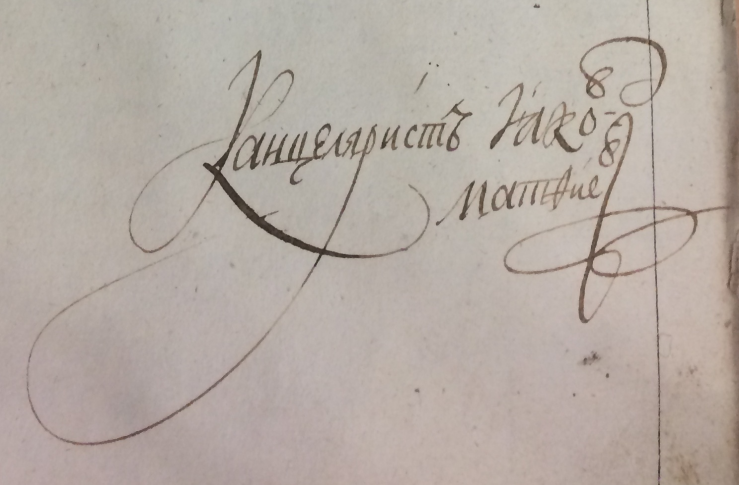 Канцеляристъ Іаков
Матвиев